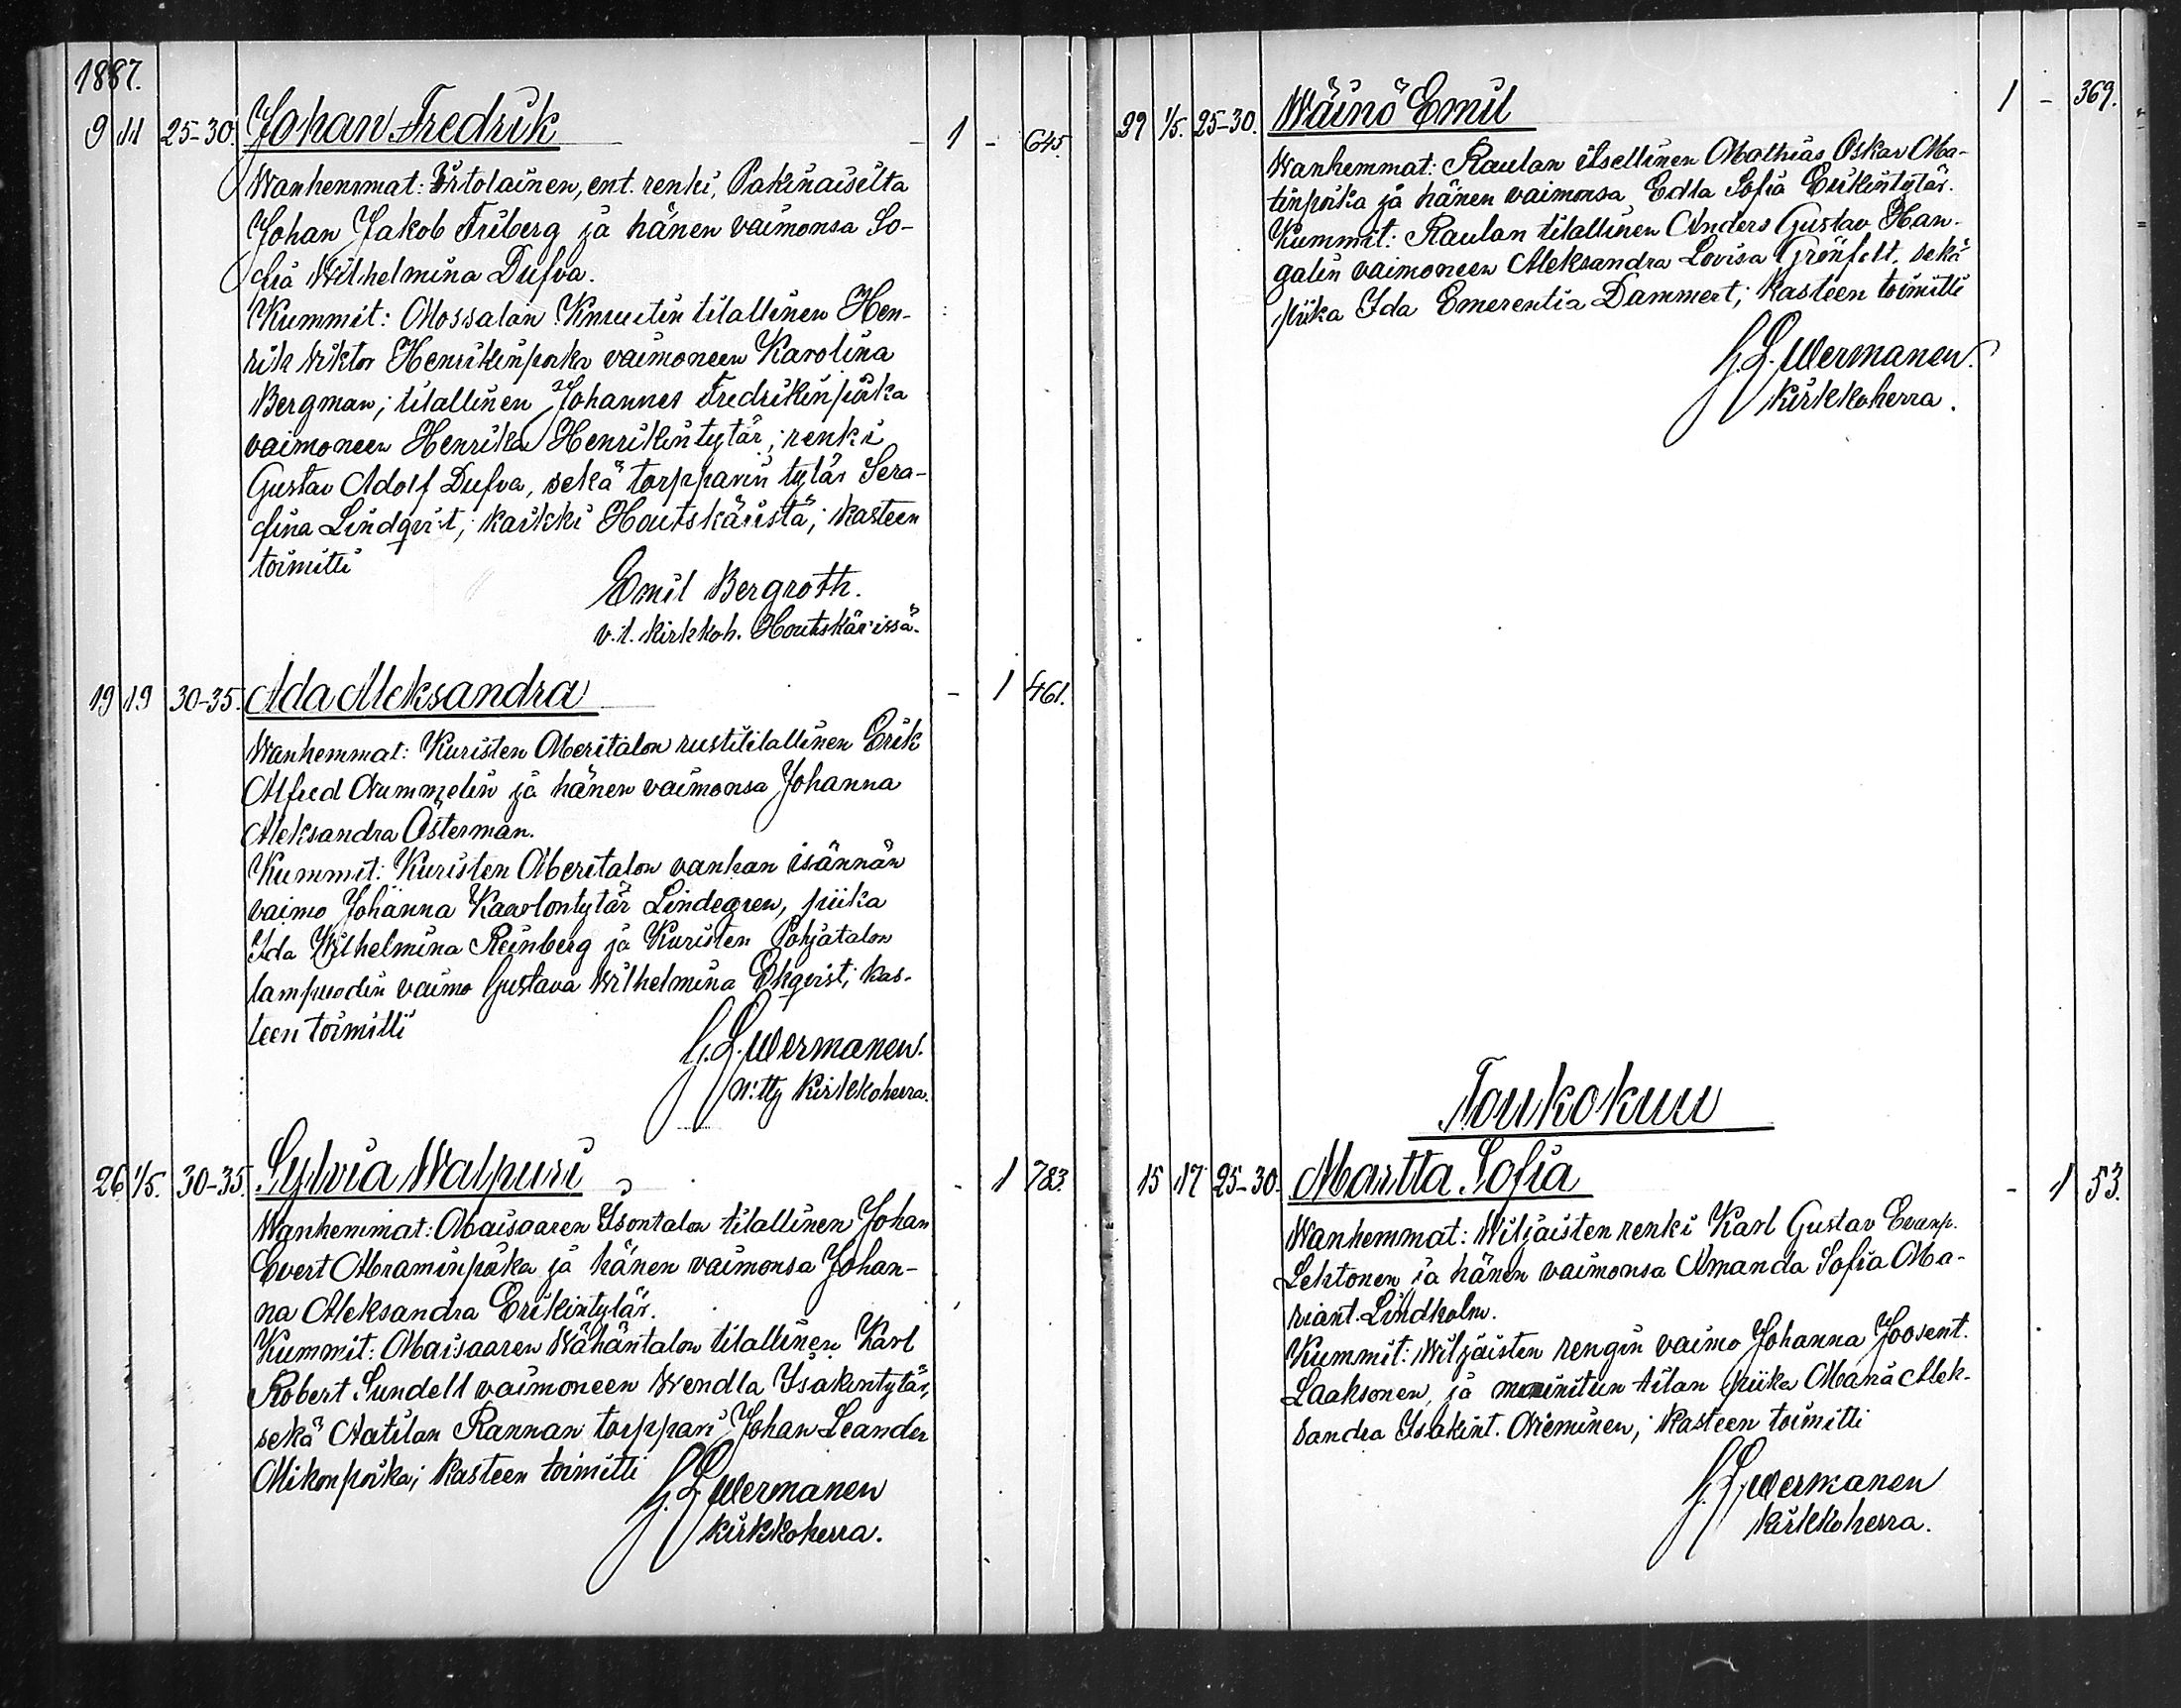 1887.
9 11 25-30. Johan Fredrik - 1 - 645.
Wanhemmat: Irtolainen, ent. renki, Pakinaiselta
Johan Jakob Friberg ja hänen vaimonsa So-
fia Wilhelmina Dufva.
Kummit: Mossalan Knuutin tilallinen Hen-
rik Viktor Henrikinpoika vaimoneen Karolina
Bergman; tilallinen Johannes Fredrikinpoika
vaimoneen Henrika Henrikintytär; renki
Gustav Adolf Dufva, sekä torpparin tytär Sera-
fina Lindqvist; kaikki Houtskäristä; kasteen
toimitti
Emil Bergroth.
v.t. kirkkoh. Houtskärissä.
19 19 30-35. Ada Aleksandra - 1 461.
Wanhemmat: Kuristen Meritalon rustitilallinen Erik
Alfred Nummelin ja hänen vaimonsa Johanna
Aleksandra Österman.
Kummit: Kuristen Meritalon vanhan isännän
vaimo Johanna Kaarlontytär Lindegren, piika
Ida Wilhelmina Reinberg ja Kuristen Pohjatalon
lampuodin vaimo Gustava Wilhelmina Ekqvist; kas-
teen toimitti
Wermanen.
n:tty kirkkoherra.
26 1/5. 30-35. Sylvia Walpuri - 1 783.
Wanhemmat: Maisaaren Isontalon tilallinen Johan
Evert Abraminpoika ja hänen vaimonsa Johan-
na Aleksandra Erikintytär.
Kummit: Maisaaren Wähäntalon tilallinen Karl
Robert Sundell vaimoneen Wendla Isakintytär,
sekä Aatilan Rannan torppari Johan Leander
Mikonpoika; kasteen toimitti
Wermanen
kirkkoherra.
29 1/5. 25-30. Wäinö Emil 1 - 369.
Wanhemmat: Raulan itsellinen Mathias Oskar Ma-
tinpoika ja hänen vaimonsa Edla Sofia Erikintytär.
Kummit: Raulan tilallinen Anders Gustav Han-
galin vaimoneen Aleksandra Lovisa Grönfelt, sekä
piika Ida Emerentia Dammert; kasteen toimitti
Wermanen.
kirkkoherra.
Toukokuu
15 17 25-30. Martta Sofia - 1 53.
Wanhemmat: Wiljaisten renki Karl Gustav Evanp.
Lehtonen ja hänen vaimonsa Amanda Sofia Ma-
riant. Lindholm.
Kummit: Wiljaisten rengin vaimo Johanna Joosent.
Laaksonen, ja mainitun tilan piika Maria Alek-
sandra Isakint. Nieminen; kasteen toimitti
Wermanen
kirkkoherra.